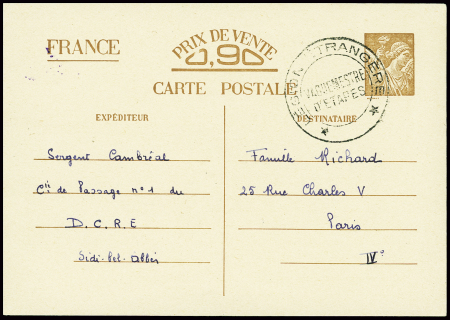 FRANCE
PRIX DE VENTE
0,90
CARTE POSTALE
LÉGION ÉTRANGÈRE
VAGUEMESTRE
D'ETAPES
EXPÉDITEUR
Sergent Cambréal
Cie de Passage n° 1 du
D.C.R.E
Sidi-bel-abbès
DESTINATAIRE
Famille Richard
25 Rue Charles V
Paris
IVe